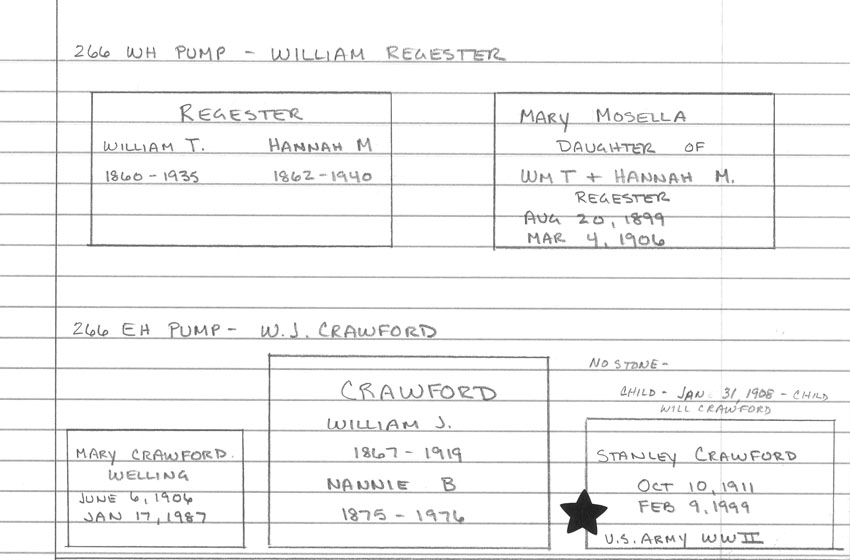 266 WH PUMP - WILLIAM REGESTER
REGESTER
WILLIAM T. HANNAH M
1860-1935 1862-1940
MARY MOSELLA
DAUGHTER OF
WM T + HANNAH M.
REGESTER
AUG 20, 1899
MAR 4, 1906
266 EH PUMP - W.J. CRAWFORD
MARY CRAWFORD.
WELLING
JUNE 6, 1906
JAN 17, 1987
CRAWFORD
WILLIAM J.
1867-1919
NANNIE B
1875-1976
NO STONE-
CHILD - JAN 31, 1908 - CHILD
WILL CRAWFORD
STANLEY CRAWFORD
OCT 10, 1911
FEB 9, 1999
U.S. ARMY WW II